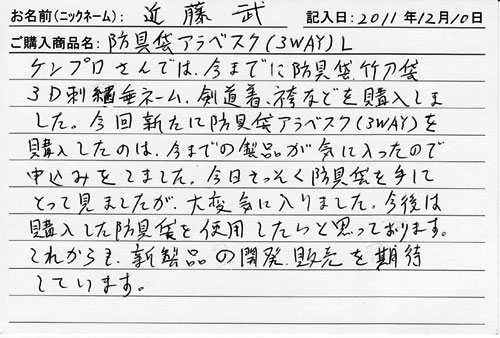 お名前(ニックネーム): 近藤 武 記入日: 2011年12月10日
ご購入商品名: 防具袋アラベスク(3WAY)L
ケンプロさんでは、今までに防具袋、竹刀袋
3D刺繍垂ネーム、剣道着、袴などを購入しま
した。今回新たに防具袋アラベスク(3WAY)を
購入したのは、今までの製品が気に入ったので
申込みをしました。今日さっそく防具袋を手に
とって見ましたが、大変気に入りました。今後は
購入した防具袋を使用したいと思っております。
これからも、新製品の開発、販売を期待
しています。